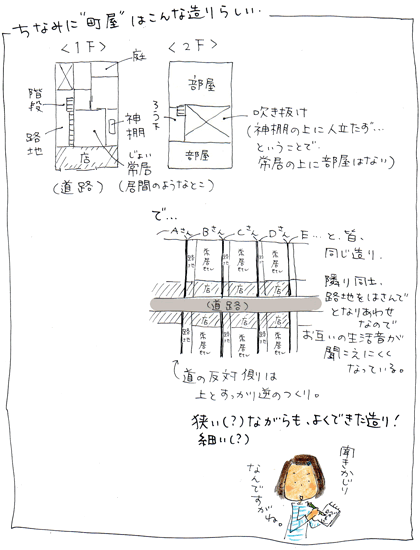 ちなみに"町屋"はこんな造りらしい・・
<1F>
庭
階段
路地
神棚
店
じょい
常居
(道路)
(居間のようなとこ)
<2F>
部屋
ろう下
部屋
吹き抜け
(神棚の上に人立たず…
ということで、
常居の上に部屋はない)
で…
Aさん Bさん Cさん Dさん E…と、皆、
同じ造り。
路地 常居 路地 常居 路地 常居 路地
店 店 店
(道路)
店 店 店
路地 常居 路地 常居 路地 常居 路地
隣り同士、
路地をはさんで
となりあわせ
なので
お互いの生活音が
聞こえにくく
なっている。
道の反対側は
上とすっかり逆のつくり。
狭い(?)ながらも、よくできた造り!
細い(?)
聞きかじり
なんですがね。